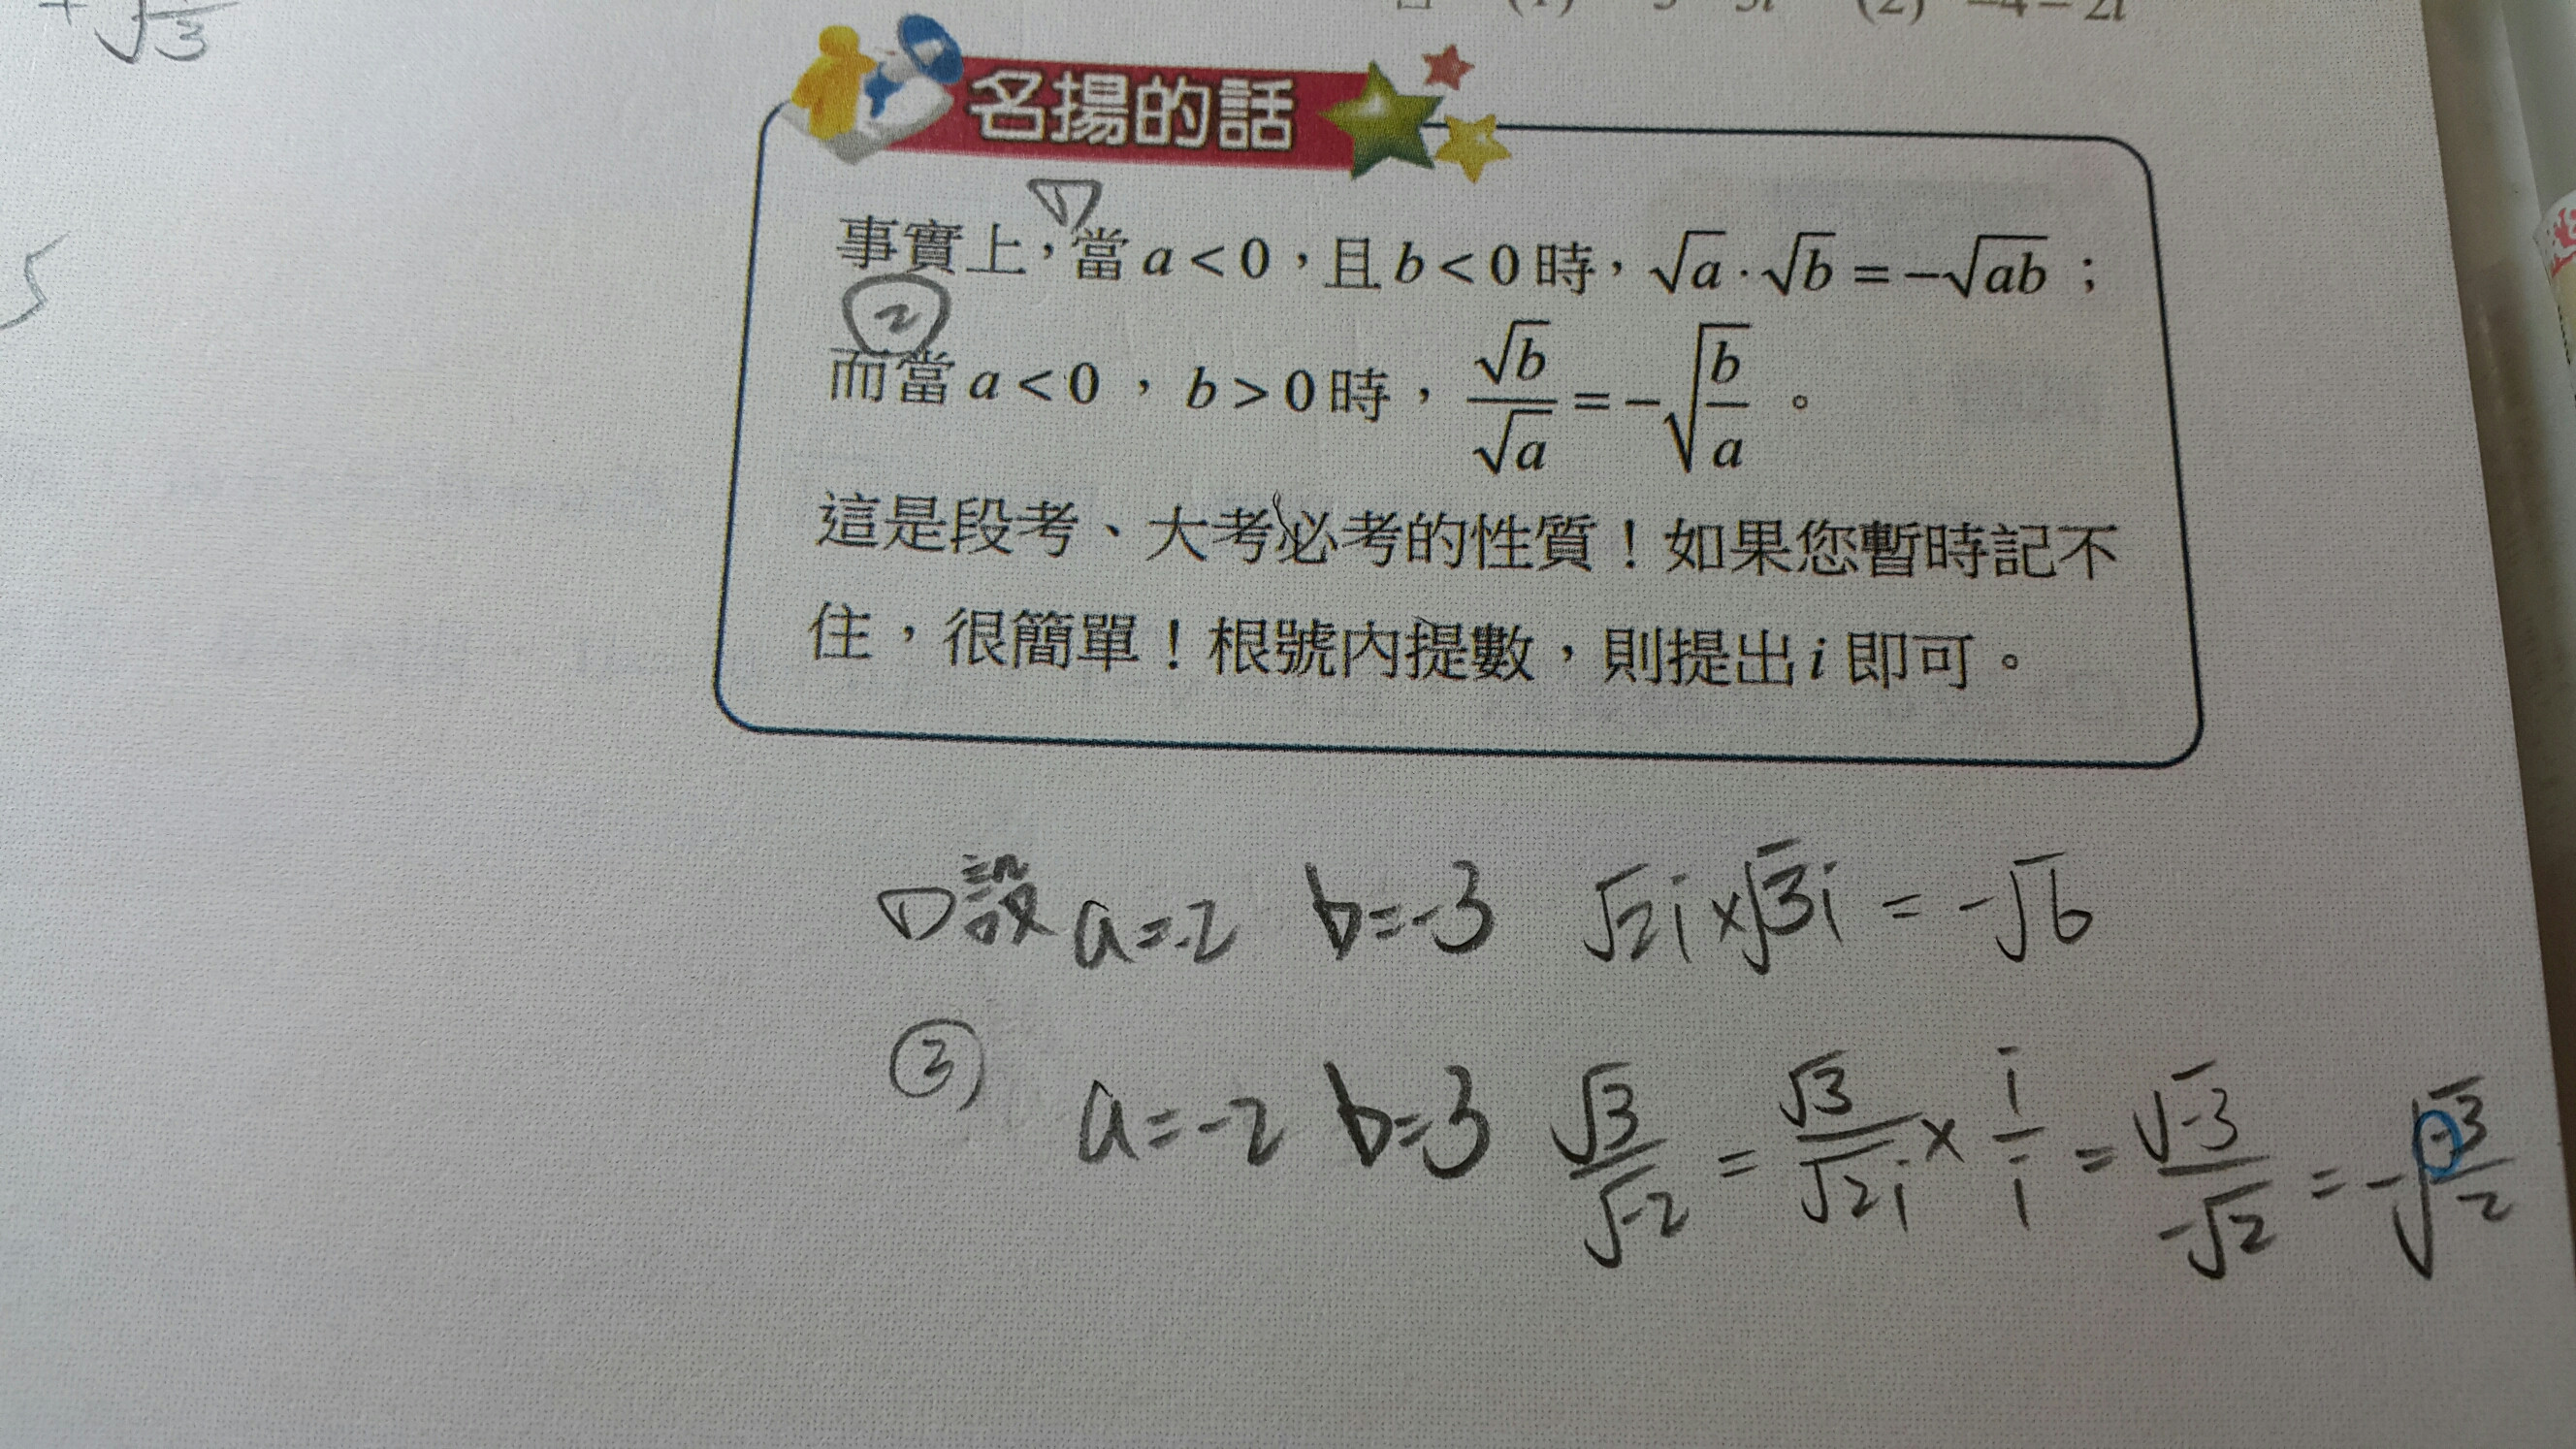 名揚的話
①
事實上，當 a < 0，且 b < 0 時，√a · √b = −√ab；
②
而當 a < 0，b > 0 時，√b/√a = −√(b/a)。
這是段考、大考必考的性質！如果您暫時記不
住，很簡單！根號內提數，則提出 i 即可。
① 設 a=-2 b=-3 √2i × √3i = -√6
② a=-2 b=3 √3/√-2 = √3/√2i × i/i = √-3/-√2 = -√(-3/2)